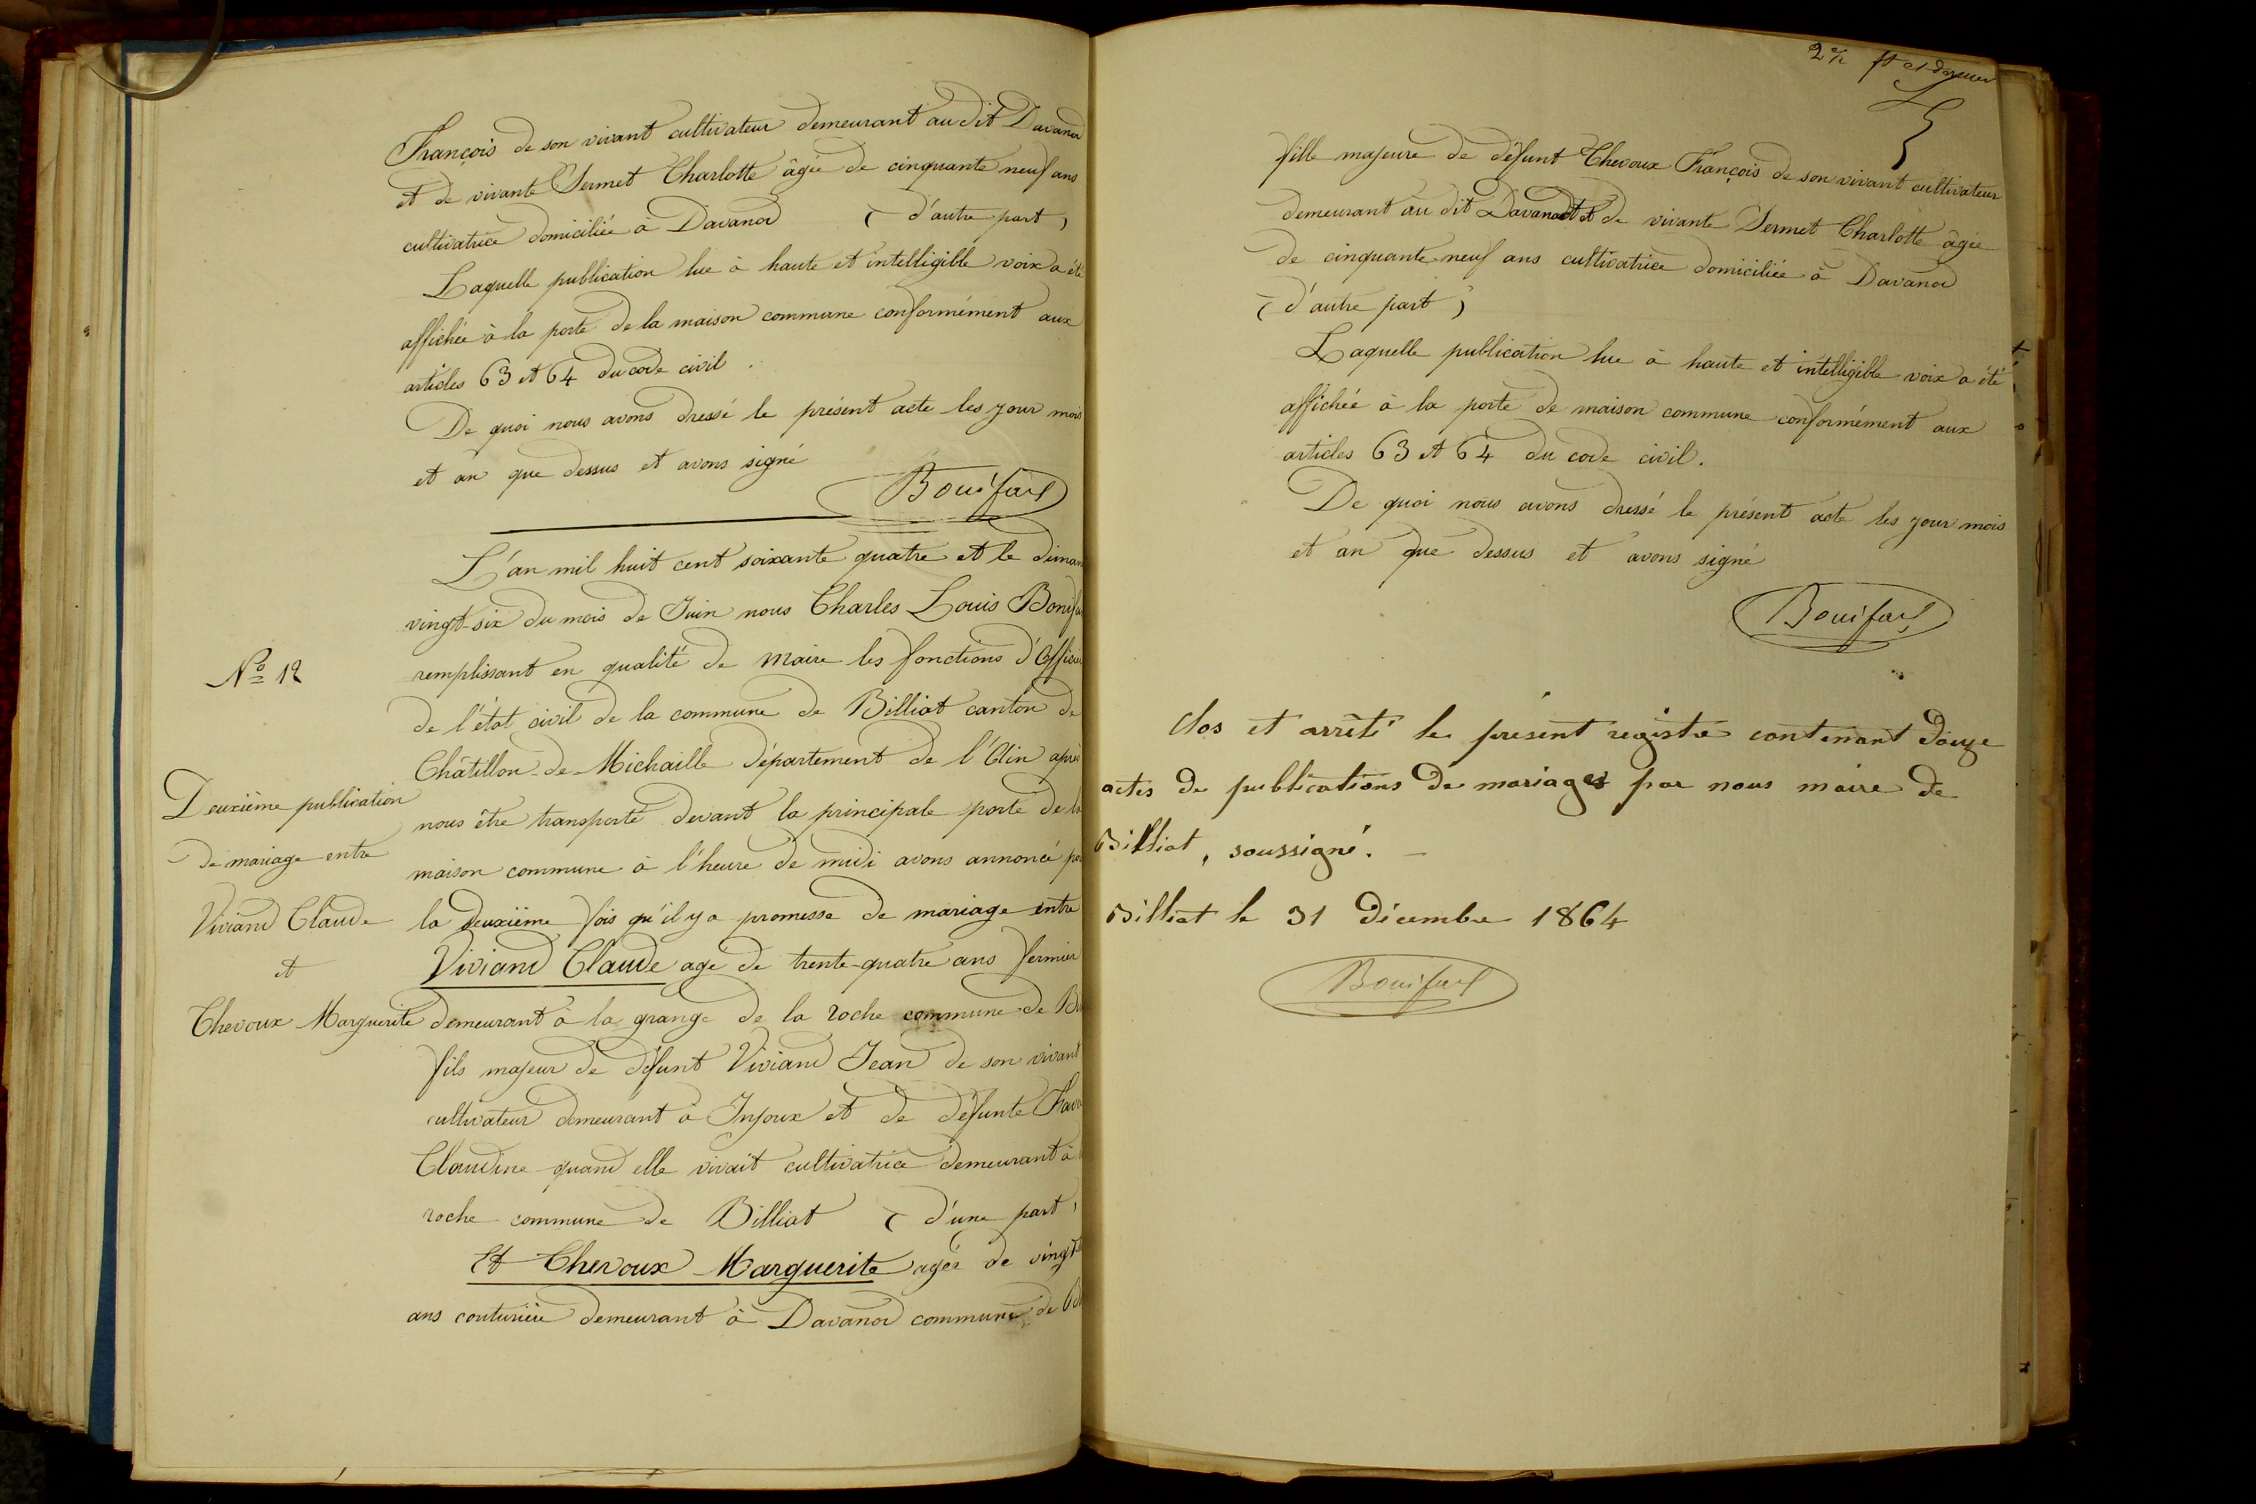 François de son vivant cultivateur demeurant au dit Davanod
et de vivante Sermet Charlotte âgée de cinquante neuf ans
cultivatrice domiciliée à Davanod ( d'autre part )
Laquelle publication lue à haute et intelligible voix a été
affichée à la porte de la maison commune conformément aux
articles 63 et 64 du code civil.
De quoi nous avons dressé le présent acte les jour mois
et an que dessus et avons signé
Bonifax
L'an mil huit cent soixante quatre et le diman
vingt-six du mois de Juin nous Charles Louis Bonifa
remplissant en qualité de Maire les fonctions d'Officier
de l'état civil de la commune de Billiat canton de
Châtillon-de-Michaille département de l'Ain après
nous être transporté devant la principale porte de la
maison commune à l'heure de midi avons annoncé po
la deuxième fois qu'il y a promesse de mariage entre
Viviand Claude age de trente-quatre ans fermier
demeurant à la grange de la roche commune de B
fils majeur de défunt Viviand Jean de son vivant
cultivateur demeurant à Injoux et de défunte
Claudine quand elle vivait cultivatrice demeurant à
roche commune de Billiat ( d'une part )
Et Chevoux Marguerite agée de vingt
ans couturière demeurant à Davanod commune de B
No 12
Deuxième publication
de mariage entre
Viviand Claude
et
Chevoux Marguerite
fille majeure de défunt Chevoux François de son vivant cultivateur
demeurant au dit Davanod et de vivante Sermet Charlotte âgée
de cinquante-neuf ans cultivatrice domiciliée à Davanod
( d'autre part )
Laquelle publication lue à haute et intelligible voix a été
affichée à la porte de maison commune conformément aux
articles 63 et 64 du code civil.
De quoi nous avons dressé le présent acte les jour mois
et an que dessus et avons signé
Bonifax
Clos et arrêté le présent registre contenant douze
actes de publications de mariages par nous maire de
Billiat, soussigné.
Billiat le 31 Décembre 1864
Bonifax